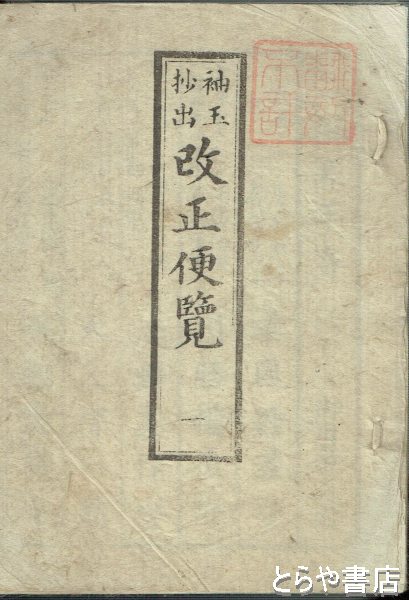 袖玉
抄出
改正便覧
一
とらや書店